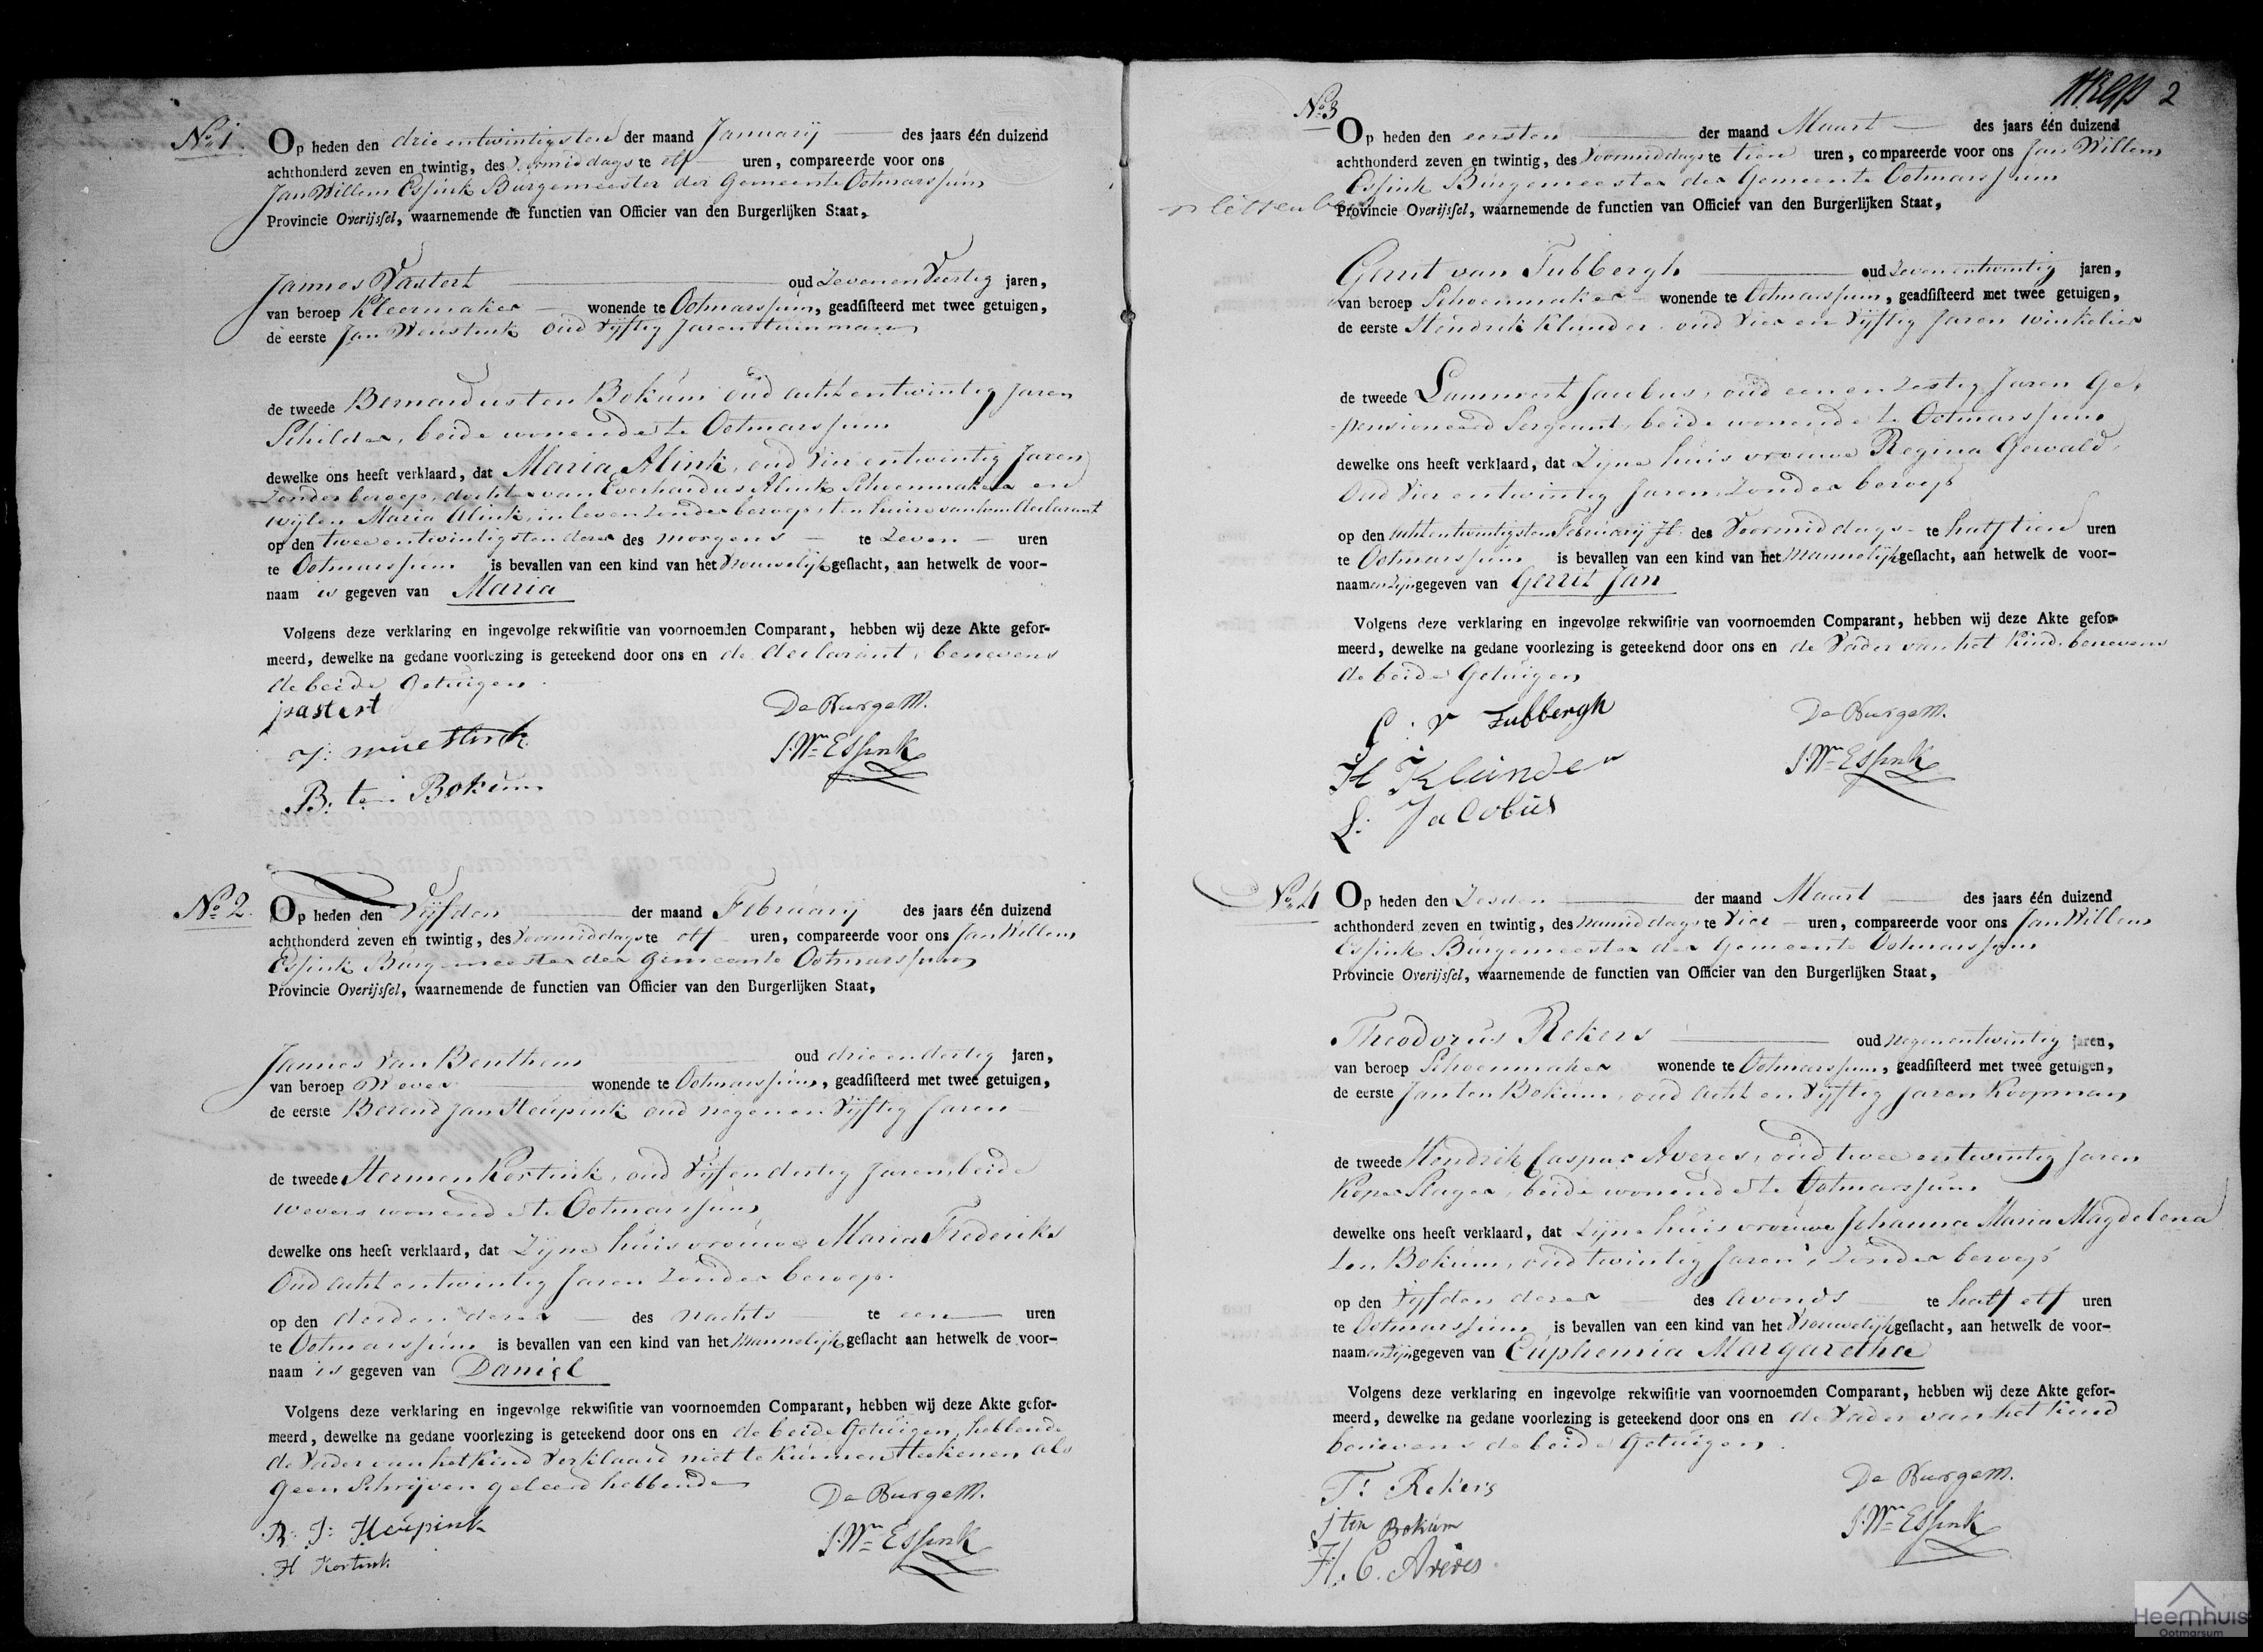 No 1.
Op heden den drie entwintigsten der maand Januarij des jaars één duizend
achthonderd zeven en twintig, des Voormiddags te elf uren, compareerde voor ons
Jan Willem Essink Burgemeester der Gemeente Ootmarssum
Provincie Overijssel, waarnemende de functien van Officier van den Burgerlijken Staat,
Jannes Vastert oud Zeven en Veertig jaren,
van beroep Kleermaker wonende te Ootmarssum, geadsisteerd met twee getuigen,
de eerste Jan Weustink oud Vijftig Jaren tuinman
de tweede Bernardus ten Bokum oud acht entwintig Jaren
Schilder, beide wonende te Ootmarssum
dewelke ons heeft verklaard, dat Maria Alink, oud Vier entwintig Jaren
Zonder beroep, dochter van Everhardus Alink Schoenmaker en
wijlen Maria Alink, in leven Zonder beroep, ten huize van hem declarant
op den twee entwintigsten dezer des morgens te Zeven uren
te Ootmarssum is bevallen van een kind van het Vrouwelijk geslacht, aan hetwelk de voor-
naam is gegeven van Maria
Volgens deze verklaring en ingevolge rekwisitie van voornoemden Comparant, hebben wij deze Akte gefor-
meerd, dewelke na gedane voorlezing is geteekend door ons en de declarant, benevens
de beide Getuigen.
De Burgem.
J: wuestink
J. Wm Essink
B. ten Bokum
No 2.
Op heden den Vijfden der maand Februarij des jaars één duizend
achthonderd zeven en twintig, des Voormiddags te elf uren, compareerde voor ons Jan Willem
Essink Burgemeester der Gemeente Ootmarssum
Provincie Overijssel, waarnemende de functien van Officier van den Burgerlijken Staat,
Jannes van Benthem oud drie en dertig jaren,
van beroep Wever wonende te Ootmarssum, geadsisteerd met twee getuigen,
de eerste Berend Jan Heupink oud negen en Vijftig Jaren
de tweede Hermen Kortink, oud Vijf en dertig Jaren, beide
wevers wonende te Ootmarssum
dewelke ons heeft verklaard, dat Zijne huisvrouwe Maria Frederiks
Oud acht entwintig Jaren Zonder beroep.
op den derden dezer des nachts te een uren
te Ootmarssum is bevallen van een kind van het Mannelijk geslacht aan hetwelk de voor-
naam is gegeven van Daniel
Volgens deze verklaring en ingevolge rekwisitie van voornoemden Comparant, hebben wij deze Akte gefor-
meerd, dewelke na gedane voorlezing is geteekend door ons en de beide Getuigen, hebbende
de Vader van het Kind Verklaard niet te kunnen teekenen als
geen Schrijven geleerd hebbende
De Burgem.
B: J: Heupink
J. Wm Essink
H Kortink
2
No 3
Op heden den eersten der maand Maart des jaars één duizend
achthonderd zeven en twintig, des Voormiddags te tien uren, compareerde voor ons Jan Willem
Essink Burgemeester der Gemeente Ootmarssum
Provincie Overijssel, waarnemende de functien van Officier van den Burgerlijken Staat,
Gerrit van Tubbergh oud Zeven entwintig jaren,
van beroep Schoenmaker wonende te Ootmarssum, geadsisteerd met twee getuigen,
de eerste Hendrik Klunder oud Vier en Vijftig Jaren winkelier
de tweede Lammert Jacobus, oud een en Zestig Jaren Ge-
pensioneerd Sergeant, beide wonende te Ootmarssum
dewelke ons heeft verklaard, dat Zijne huisvrouwe Regina Gewald,
Oud Vier entwintig Jaren, Zonder beroep
op den achtentwintigsten Februarij Jl. des Voormiddags te half tien uren
te Ootmarssum is bevallen van een kind van het Mannelijk geslacht, aan hetwelk de voor-
naamen zijn gegeven van Gerrit Jan
Volgens deze verklaring en ingevolge rekwisitie van voornoemden Comparant, hebben wij deze Akte gefor-
meerd, dewelke na gedane voorlezing is geteekend door ons en de Vader van het Kind, benevens
de beide Getuigen
De Burgem.
G. v Tubbergh
H Klunder
J. Wm Essink
L. Jacobus
No 4
Op heden den Zesden der maand Maart des jaars één duizend
achthonderd zeven en twintig, des namiddags te Vier uren, compareerde voor ons Jan Willem
Essink Burgemeester der Gemeente Ootmarssum
Provincie Overijssel, waarnemende de functien van Officier van den Burgerlijken Staat,
Theodorus Rekers oud negen entwintig jaren,
van beroep Schoenmaker wonende te Ootmarssum, geadsisteerd met twee getuigen,
de eerste Jan ten Bokum, oud acht en Vijftig Jaren Koopman
de tweede Hendrik Caspar Averes, oud twee entwintig Jaren
Koper Slager, beide wonende te Ootmarssum
dewelke ons heeft verklaard, dat Zijne huisvrouwe Johanna Maria Magdelena
ten Bokum, oud twintig Jaren, Zonder beroep
op den Vijfden dezer des avonds te half elf uren
te Ootmarssum is bevallen van een kind van het Vrouwelijk geslacht, aan hetwelk de voor-
naamen zijn gegeven van Euphemia Margaretha
Volgens deze verklaring en ingevolge rekwisitie van voornoemden Comparant, hebben wij deze Akte gefor-
meerd, dewelke na gedane voorlezing is geteekend door ons en de Vader van het Kind
benevens de beide Getuigen.
De Burgem.
T: Rekers
J ten Bokum
J. Wm Essink
H. C. Averes
Heemhuis
Ootmarsum